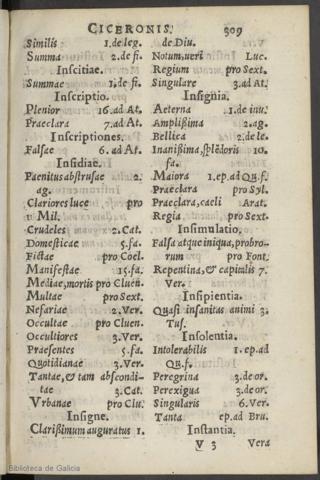 CICERONIS. 309
Similis 1.de leg.
Summa 2.de fi.
Inscitiae.
Summae 1.de fi.
Inscriptio.
Plenior 16.ad At.
Praeclara 7.ad At.
Inscriptiones.
Falsae 6.ad At.
Insidiae.
Paenitus abstrusae 2.
ag.
Clariores luce pro
Mil.
Crudeles 2.Cat.
Domesticae 5.fa.
Fictae pro Coel.
Manifestae 15.fa.
Mediae, mortis pro Cluen.
Multae pro Sext.
Nefariae 2.Ver.
Occultae pro Cluen.
Occultiores 3.Ver.
Praesentes 5.fa.
Quotidianae 3.Ver.
Tantae, & tam abscondi-
tae 3.Cat.
Vrbanae pro Clu.
Insigne.
Clarißimum auguratus 1.
de Diu.
Notum, ueri Luc.
Regium pro Sext.
Singulare 3.ad At.
Insignia.
Aeterna 1.de inu.
Amplißima 2.ag.
Bellica 2.de le.
Inanißima, splēdoris 10.
fa.
Maiora 1.ep.ad Qu.f.
Praeclara pro Syl.
Praeclara, caeli Arat.
Regia pro Sext.
Insimulatio.
Falsa atque iniqua, probro-
rum pro Font.
Repentina, & capitalis 7.
Ver.
Insipientia.
Quasi insanitas animi 3.
Tus.
Insolentia.
Intolerabilis 1.ep.ad
Qu.f.
Peregrina 3.de or.
Perexigua 3.de or.
Singularis 6.Ver.
Tanta ep.ad Bru.
Instantia.
V 3 Vera
Biblioteca de Galicia